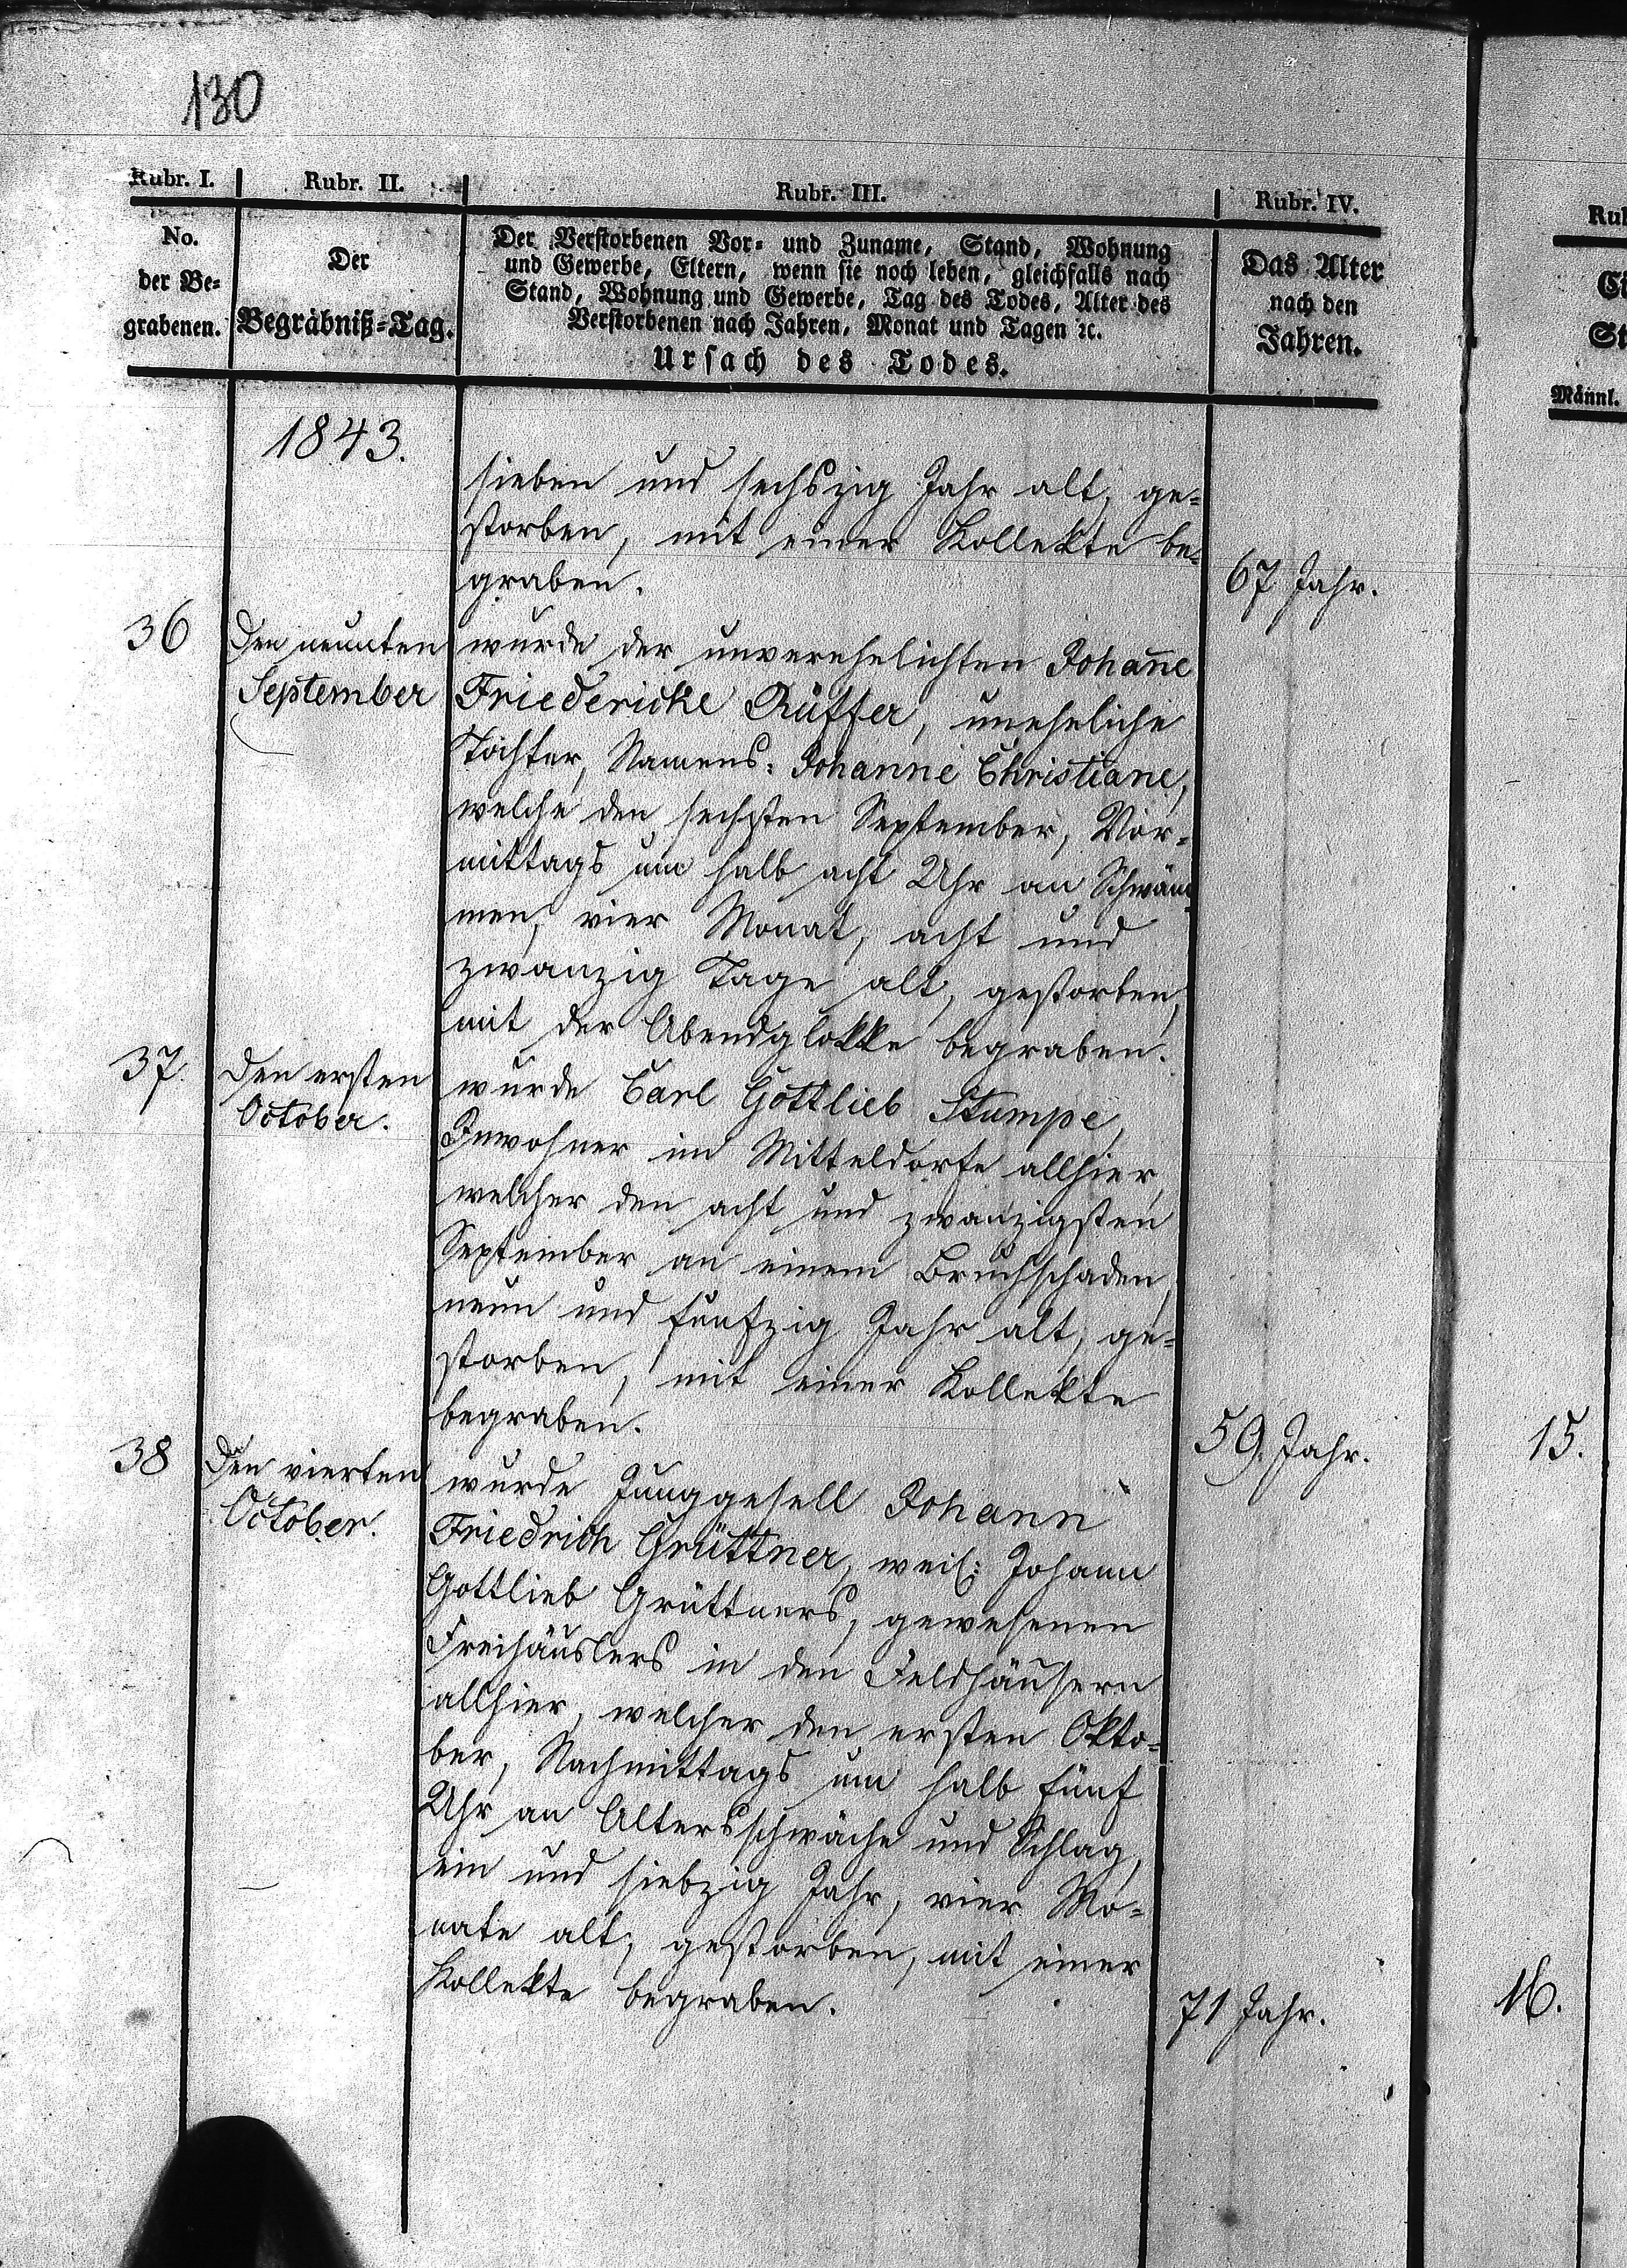 130
Rubr. I. Rubr. II. Rubr. III. Rubr. IV.
No.
der Be=
grabenen.
Der
Begräbniß=Tag.
Der Verstorbenen Vor= und Zuname, Stand, Wohnung
und Gewerbe, Eltern, wenn sie noch leben, gleichfalls nach
Stand, Wohnung und Gewerbe, Tag des Todes, Alter des
Verstorbenen nach Jahren, Monat und Tagen ꝛc.
Ursach des Todes.
Das Alter
nach den
Jahren.
Männl.
1843.
sieben und sechszig Jahr alt, ge=
storben, mit einer Kollekte be=
graben.
67 Jahr.
36
Den neunten
September
wurde der unverehelichten Johan̄e
Friedericke Rüffer, uneheliche
Tochter, Namens: Johanne Christiane,
welche den sechsten September, Vor=
mittags um halb acht Uhr an Schwäm
men, vier Monat, acht und
zwanzig Tage alt, gestorben,
mit der Abendglokke begraben.
37.
Den ersten
October.
wurde Carl Gottlieb Stumpe,
Inwohner im Mitteldorfe allhier,
welcher den acht und zwanzigsten
September an einem Bruchschaden,
neun und fünfzig Jahr alt, ge=
storben, mit einer Kollekte
begraben.
59. Jahr.
15.
38
Den vierten
October.
wurde Junggesell Johann
Friedrich Grüttner, weil: Johann
Gottlieb Grüttners, gewesenen
Freihäuslers in den Feldhäusern
allhier, welcher den ersten Okto=
ber, Nachmittags um halb fünf
Uhr an Altersschwäche und Schlag,
ein und siebzig Jahr, vier Mo=
nate alt, gestorben, mit einer
Kollekte begraben.
71 Jahr.
16.